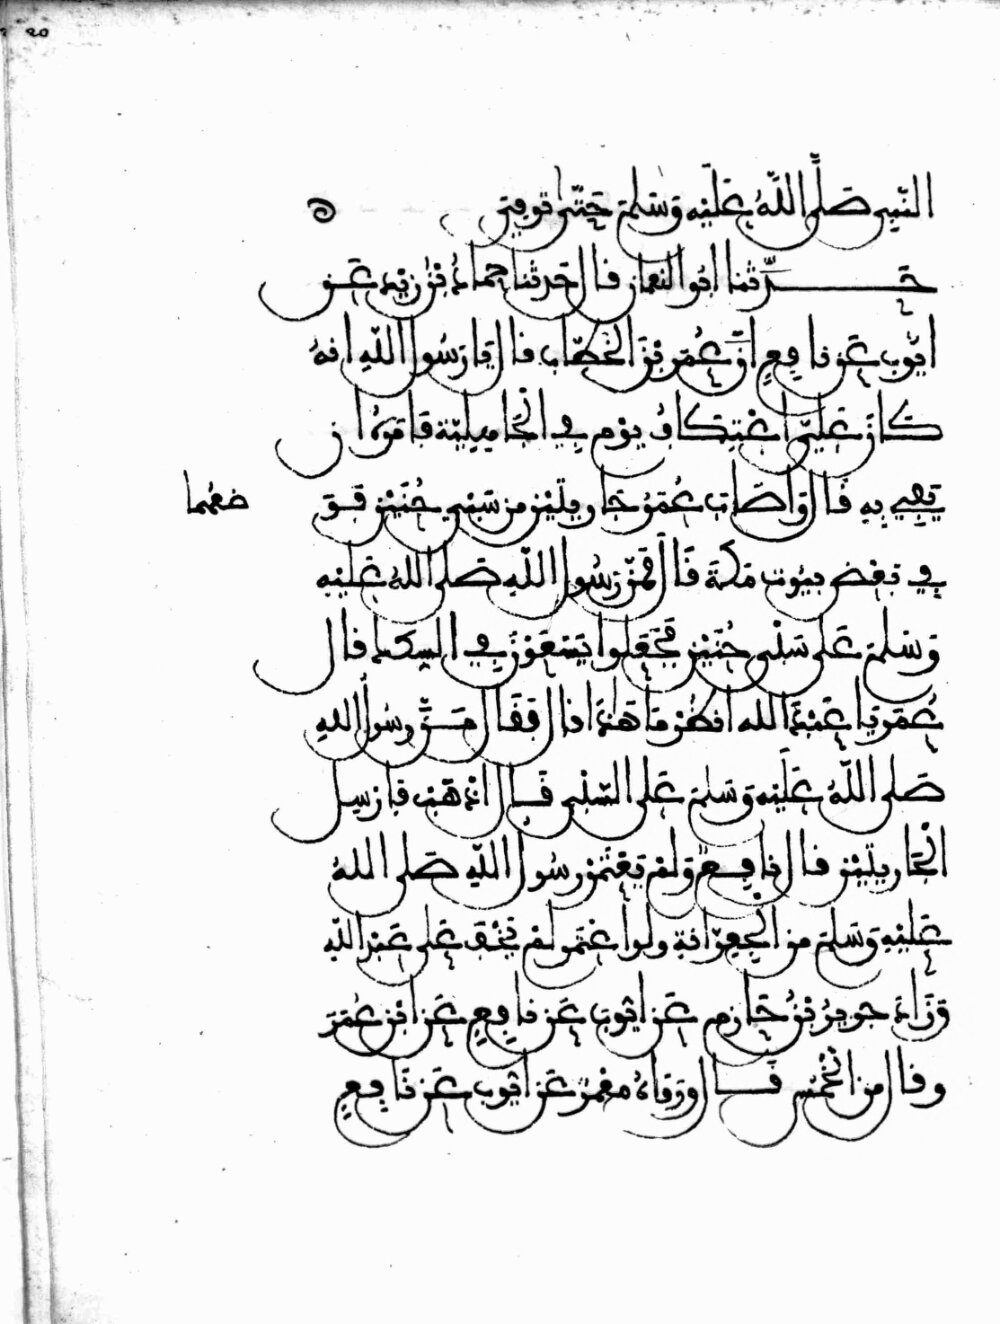 20
النّبِي صَلَّى اللّهُ عَلَيْهِ وَسَلم حَتّى تُوفِيَ
حَدّثنا ابُو النعمان قال حَدثنا حَمادُ بْنُ زَيْد عَن
ايّوب عَن نافِعٍ انّ عُمَرَ بْنَ الخَطّاب قال يَا رَسُول اللّهِ انهُ
كانَ عَلَيّ اعْتِكافُ يَوْم في الجَاهِلِيّة فَامَرَهُ ان
يَفِي بِهِ قَال وَاصَابَ عُمَرُ جَارِيتَيْن مِن سَبْيِ حُنَيْن فَوَ
ضعهما
في بَعْض بيُوت مَكةَ قَال فَمَنّ رَسُول اللّهِ صَلى اللهُ عَلَيْهِ
وَسَلم عَلى سَبْي حُنَيْن فَجَعَلوا يَسْعَوْنَ فِي السِكك قال
عُمَر يَا عَبْدَ الله انظُرْ مَا هَذا قال فَقَال مَنّ رسُول اللهِ
صَلى اللّهُ عَلَيْهِ وَسَلم عَلى السّبْي قَال اذهَبْ فارْسِل
الجَارِيتَيْن قال نافِعٌ وَلمْ يَعْتَمِرْ رسُول اللّهِ صَلى اللهُ
عَلَيْهِ وَسَلم مِن الجِعِرّانةِ ولو اعْتَمر لمْ يَخْفَ عَلى عَبْدِ اللّهِ
وَزَادَ جَرِيرُ بْنُ حَازِم عَن ايّوب عَن نافِعٍ عَن ابْن عُمَرَ
وقال مِن الخُمْسِ قَال وَرَوَاهُ مَعْمَرٌ عَن ايّوب عَن نَافِعٍ